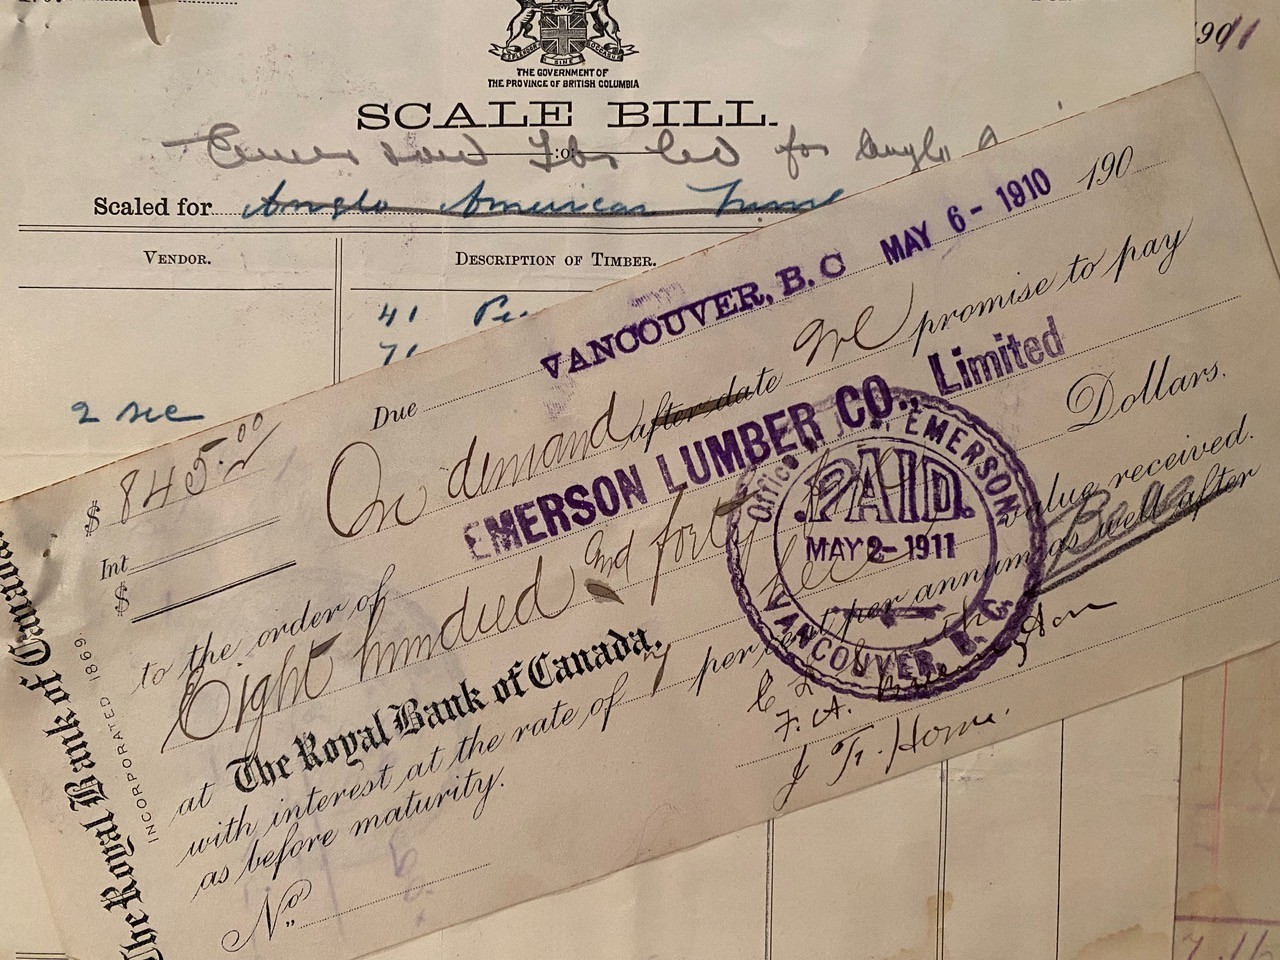 1911
THE GOVERNMENT OF
THE PROVINCE OF BRITISH COLUMBIA
SCALE BILL.
Emerson Lbr Co for Anglo
Scaled for Anglo American
VENDOR.
DESCRIPTION OF TIMBER.
41
71
2 sec
VANCOUVER, B. C MAY 6 - 1910 190
Due
$ 845.00
On demand after date We promise to pay
Int
$
to the order of EMERSON LUMBER CO., Limited
Eight hundred and forty Dollars.
at The Royal Bank of Canada. value received.
with interest at the rate of 7 per cent per annum as well after
as before maturity.
No
F. A.
J. Horne.
The Royal Bank of Canada
INCORPORATED 1869.
Office EMERSON
PAID.
MAY 2 - 1911
VANCOUVER, B. C.